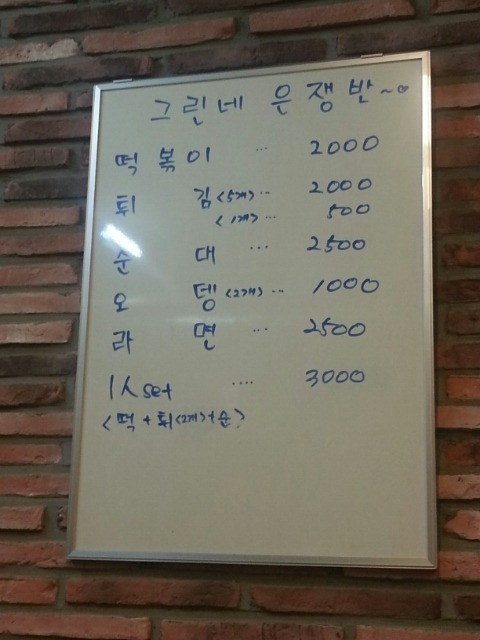 그린네 은쟁반~
떡볶이 ... 2000
튀 김 <5개> ... 2000
<1개> ... 500
순 대 ... 2500
오 뎅 <2개> ... 1000
라 면 ... 2500
1人 set .... 3000
<떡+튀<2개>+순>